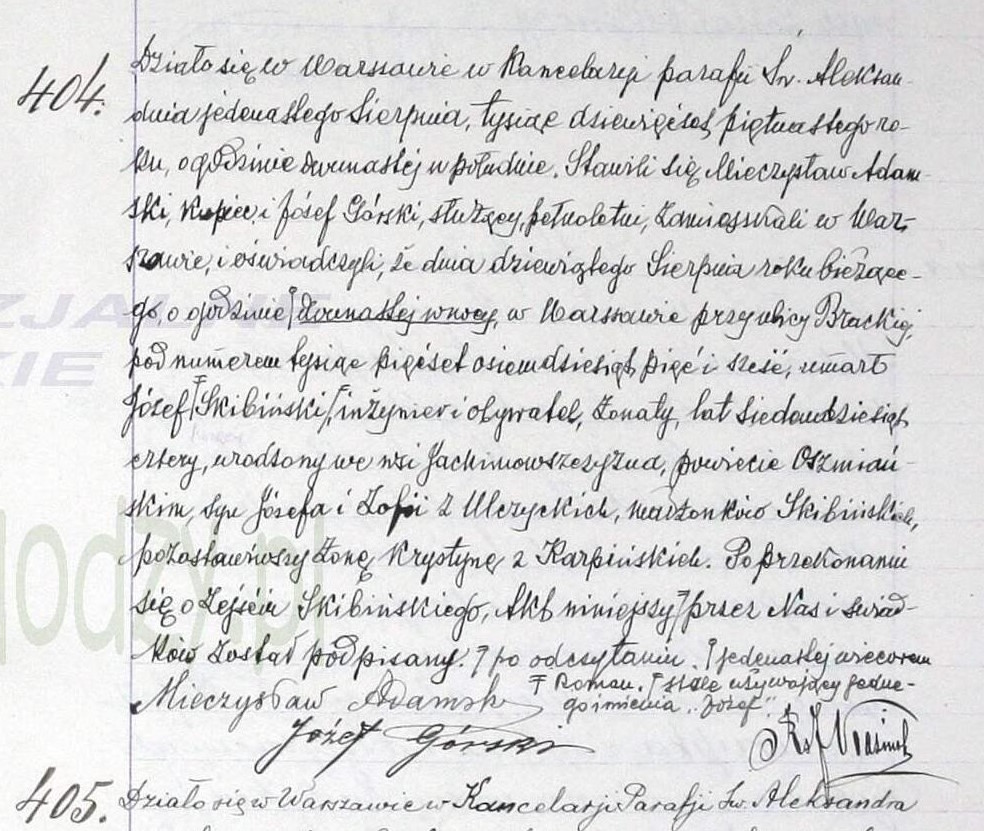 404.
Działo się w Warszawie w Kancelaryi parafii Św. Aleksan-
dnia jedenastego Sierpnia, tysiąc dziewięćset piętnastego ro-
ku, o godzinie dwunastej w południe. Stawili się Mieczysław Adam-
ski, kupiec i Józef Górski, służący, pełnoletni, zamieszkali w War-
szawie, i oświadczyli, że dnia dziewiątego Sierpnia roku bieżące-
go, o godzinie dwunastej w nocy, w Warszawie przy ulicy Brackiej,
pod numerem tysiąc pięćset osiemdziesiąt pięć i sześć, umarł
Józef Skibiński, inżynier i obywatel, żonaty, lat siedemdziesiąt
cztery, urodzony we wsi Jachimowszczyzna, powiecie Oszmiań-
skim, syn Józefa i Zofii z Ulczyckich, małżonków Skibińskich,
pozostawiwszy żonę Krystynę z Karpińskich. Po przekonaniu
się o zejściu Skibińskiego, Akt niniejszy przez Nas i świad-
ków został podpisany. po odczytaniu. jedenastej wieczorem
Roman. stale używający jedne-
go imienia „Józef”
Mieczysław Adamski
Józef Górski
405. Działo się w Warszawie w Kancelarji Parafji Św. Aleksandra
ZJALNE
KIE
lodzy.pl